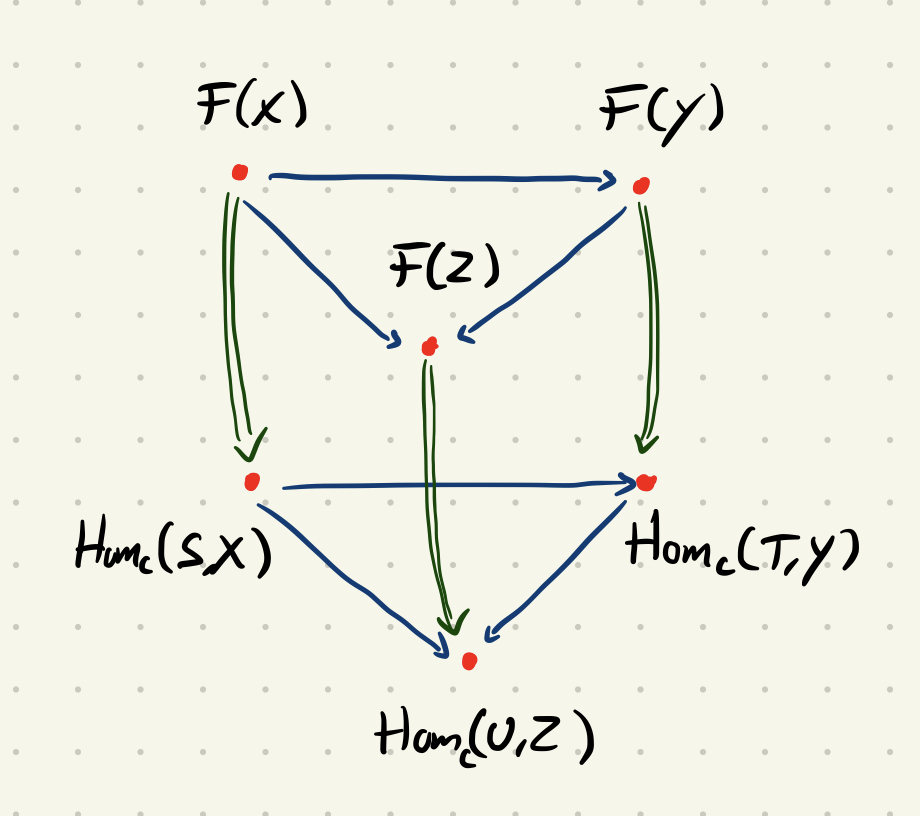 F(X)
F(Y)
F(Z)
Hom_C(S,X)
Hom_C(T,Y)
Hom_C(U,Z)